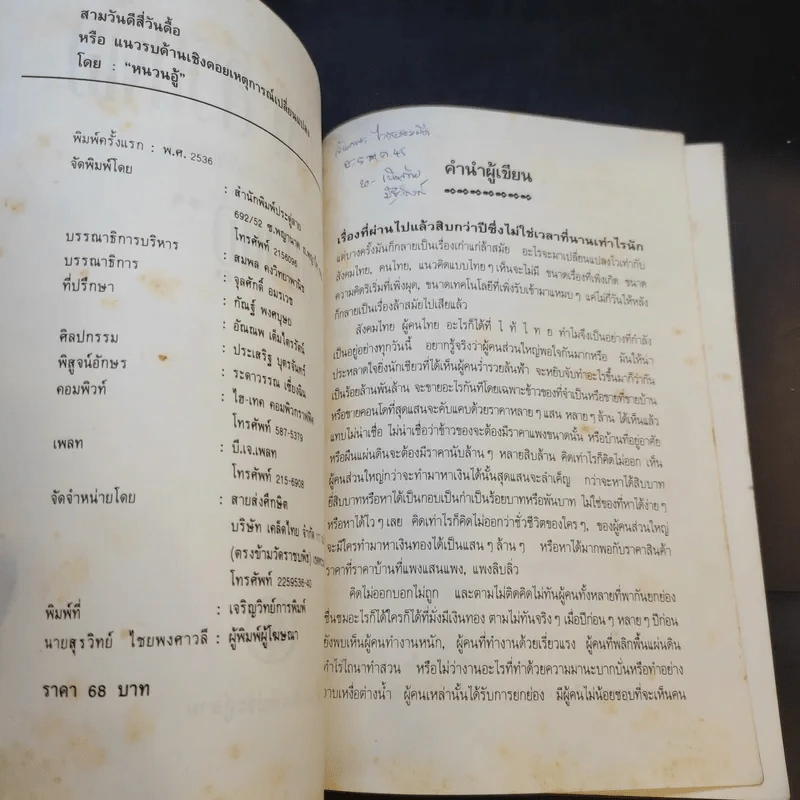 สามวันดีสี่วันดื้อ
หรือ แนวรบด้านเชิงดอยเหตุการณ์เปลี่ยนแปลง
โดย : "หนวนอู้"
พิมพ์ครั้งแรก : พ.ศ. 2536
จัดพิมพ์โดย : สำนักพิมพ์ประตูสาม
692/52 ซ.พญานาค
โทรศัพท์ 2156098
บรรณาธิการบริหาร : สมพล คงวิทยาพานิช
บรรณาธิการ : จุลศักดิ์ อมรเวช
ที่ปรึกษา : กัณฐ์ พงศบุษย
: อัณณพ เต็มไตรรัตน์
ศิลปกรรม : ประเสริฐ บุตรจันทร์
พิสูจน์อักษร : ระดาวรรณ เชี่ยงฉิน
คอมพิวท์ : ไฮ-เทค คอมพิวกราฟฟิค
โทรศัพท์ 587-5379
เพลท : บี.เจ.เพลท
โทรศัพท์ 215-6908
จัดจำหน่ายโดย : สายส่งศึกษิต
บริษัท เคล็ดไทย จำกัด
(ตรงข้ามวัดราชบพิธ)
โทรศัพท์ 2259536-40
พิมพ์ที่ : เจริญวิทย์การพิมพ์
นายสุรวิทย์ ไชยพงศาวลี : ผู้พิมพ์ผู้โฆษณา
ราคา 68 บาท
คำนำผู้เขียน
เรื่องที่ผ่านไปแล้วสิบกว่าปีซึ่งไม่ใช่เวลาที่นานเท่าไรนัก
แต่บางครั้งมันก็กลายเป็นเรื่องเก่าแก่ล้าสมัย อะไรจะมาเปลี่ยนแปลงไวเท่ากับ
สังคมไทย, คนไทย, แนวคิดแบบไทยๆ เห็นจะไม่มี ขนาดเรื่องที่เพิ่งเกิด ขนาด
ความคิดริเริ่มที่เพิ่งผุด, ขนาดเทคโนโลยีที่เพิ่งรับเข้ามาแหมบๆ แค่ไม่กี่วันให้หลัง
ก็กลายเป็นเรื่องล้าสมัยไปเสียแล้ว
สังคมไทย ผู้คนไทย อะไรก็ได้ที่ ไ ท๊ ไ ท ย ทำไมจึงเป็นอย่างที่กำลัง
เป็นอยู่อย่างทุกวันนี้ อยากรู้จริงว่าผู้คนส่วนใหญ่พอใจกันมากหรือ มันให้น่า
ประหลาดใจยิ่งนักเชียวที่ได้เห็นผู้คนร่ำรวยล้นฟ้า จะหยิบจับทำอะไรขึ้นมาก็ว่ากัน
เป็นร้อยล้านพันล้าน จะขายอะไรกันทีโดยเฉพาะข้าวของที่จำเป็นหรือขายที่ขายบ้าน
หรือขายคอนโดที่สุดแสนจะคับแคบด้วยราคาหลายๆ แสน หลายๆ ล้าน ได้เห็นแล้ว
แทบไม่น่าเชื่อ ไม่น่าเชื่อว่าข้าวของจะต้องมีราคาแพงขนาดนั้น หรือบ้านที่อยู่อาศัย
หรือผืนแผ่นดินจะต้องมีราคานับล้านๆ หลายสิบล้าน คิดเท่าไรก็คิดไม่ออก เห็น
ผู้คนส่วนใหญ่กว่าจะทำมาหาเงินได้นั้นสุดแสนจะลำเค็ญ กว่าจะหาได้สิบบาท
ยี่สิบบาทหรือหาได้เป็นกอบเป็นกำเป็นร้อยบาทหรือพันบาท ไม่ใช่ของที่หาได้ง่ายๆ
หรือหาได้ไวๆ เลย คิดเท่าไรก็คิดไม่ออกว่าชั่วชีวิตของใครๆ, ของผู้คนส่วนใหญ่
จะมีใครทำมาหาเงินทองได้เป็นแสนๆ ล้านๆ หรือหาได้มากพอกับราคาสินค้า
ราคาที่ราคาบ้านที่แพงแสนแพง, แพงลิบลิ่ว
คิดไม่ออกบอกไม่ถูก และตามไม่ติดคิดไม่ทันผู้คนทั้งหลายที่พากันยกย่อง
ชื่นชมอะไรก็ได้ใครก็ได้ที่มั่งมีเงินทอง ตามไม่ทันจริงๆ เมื่อปีก่อนๆ หลายๆ ปีก่อน
ยังพบเห็นผู้คนทำงานหนัก, ผู้คนที่ทำงานด้วยเรี่ยวแรง ผู้คนที่พลิกพื้นแผ่นดิน
ทำไร่ไถนาทำสวน หรือไม่ว่างานอะไรที่ทำด้วยความมานะบากบั่นหรือทำอย่าง
อาบเหงื่อต่างน้ำ ผู้คนเหล่านั้นได้รับการยกย่อง มีผู้คนไม่น้อยชอบที่จะเห็นคน